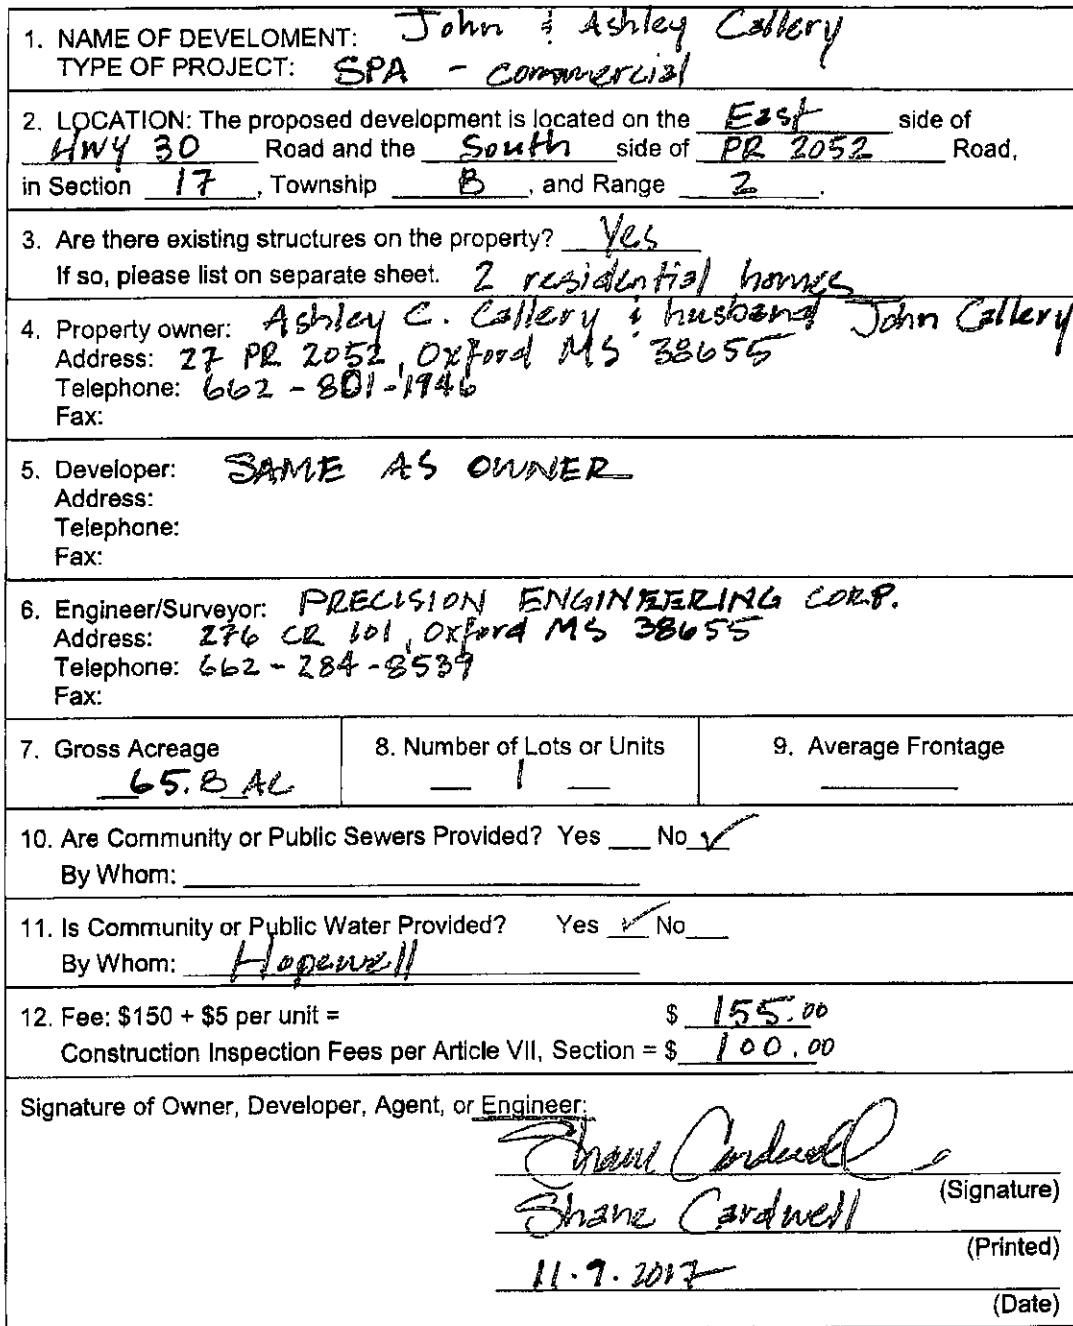 1. NAME OF DEVELOMENT: John & Ashley Callery
TYPE OF PROJECT: SPA - commercial
2. LOCATION: The proposed development is located on the East side of
HWY 30 Road and the South side of PR 2052 Road,
in Section 17, Township 8, and Range 2.
3. Are there existing structures on the property? Yes
If so, please list on separate sheet. 2 residential homes
4. Property owner: Ashley C. Callery & husband John Callery
Address: 27 PR 2052, Oxford MS 38655
Telephone: 662-801-1946
Fax:
5. Developer: SAME AS OWNER
Address:
Telephone:
Fax:
6. Engineer/Surveyor: PRECISION ENGINEERING CORP.
Address: 276 CR 101, Oxford MS 38655
Telephone: 662-284-8539
Fax:
7. Gross Acreage 8. Number of Lots or Units 9. Average Frontage
65.8 AC 1
10. Are Community or Public Sewers Provided? Yes ___ No ✓
By Whom:
11. Is Community or Public Water Provided? Yes ✓ No ___
By Whom: Hopewell
12. Fee: $150 + $5 per unit = $ 155.00
Construction Inspection Fees per Article VII, Section = $ 100.00
Signature of Owner, Developer, Agent, or Engineer:
Shane Cardwell
(Signature)
Shane Cardwell
(Printed)
11.9.2017
(Date)